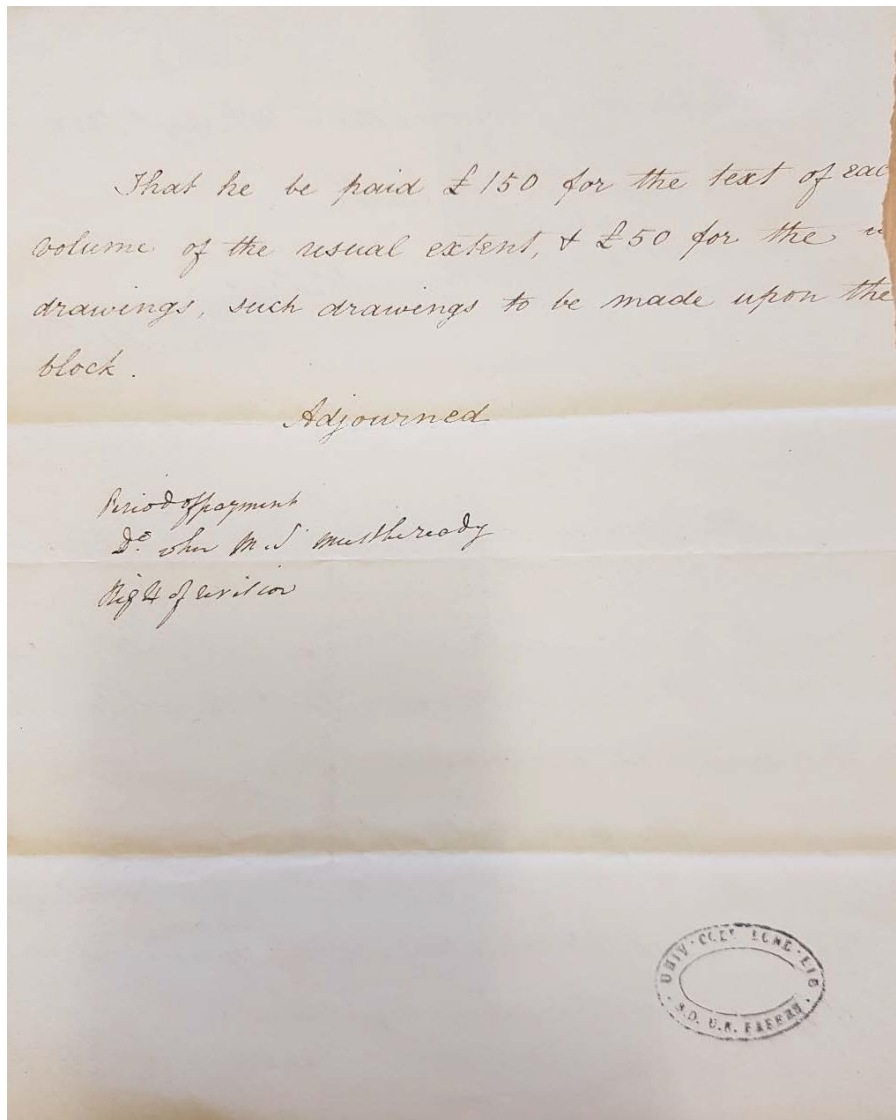 That he be paid £150 for the text of eac
volume of the usual extent, & £50 for the
drawings, such drawings to be made upon the
block.
Adjourned
Period of payment
Do. when M.S must be ready
Right of revision
UNIV. COLL. LOND. LIB.
S.D.U.K. PAPERS